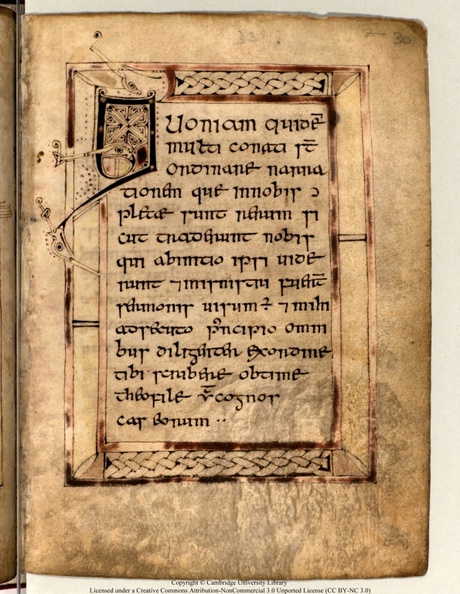 30
QUoniam quidē
multi conati st̄
ordinare narra
tionem que innobis ɔ
plete sunt rerum si
cut traderunt nobis
qui abinitio ipsi uide
runt ⁊ ministri fuer̄t
sermonis uisum ÷ ⁊ mihi
adsecuto p̄ncipio omni
bus diligenter exordine
tibi scribere obtime
theofile v̄ cognos
cas eorum ··
Copyright © Cambridge University Library
Licensed under a Creative Commons Attribution-NonCommercial 3.0 Unported License (CC BY-NC 3.0)